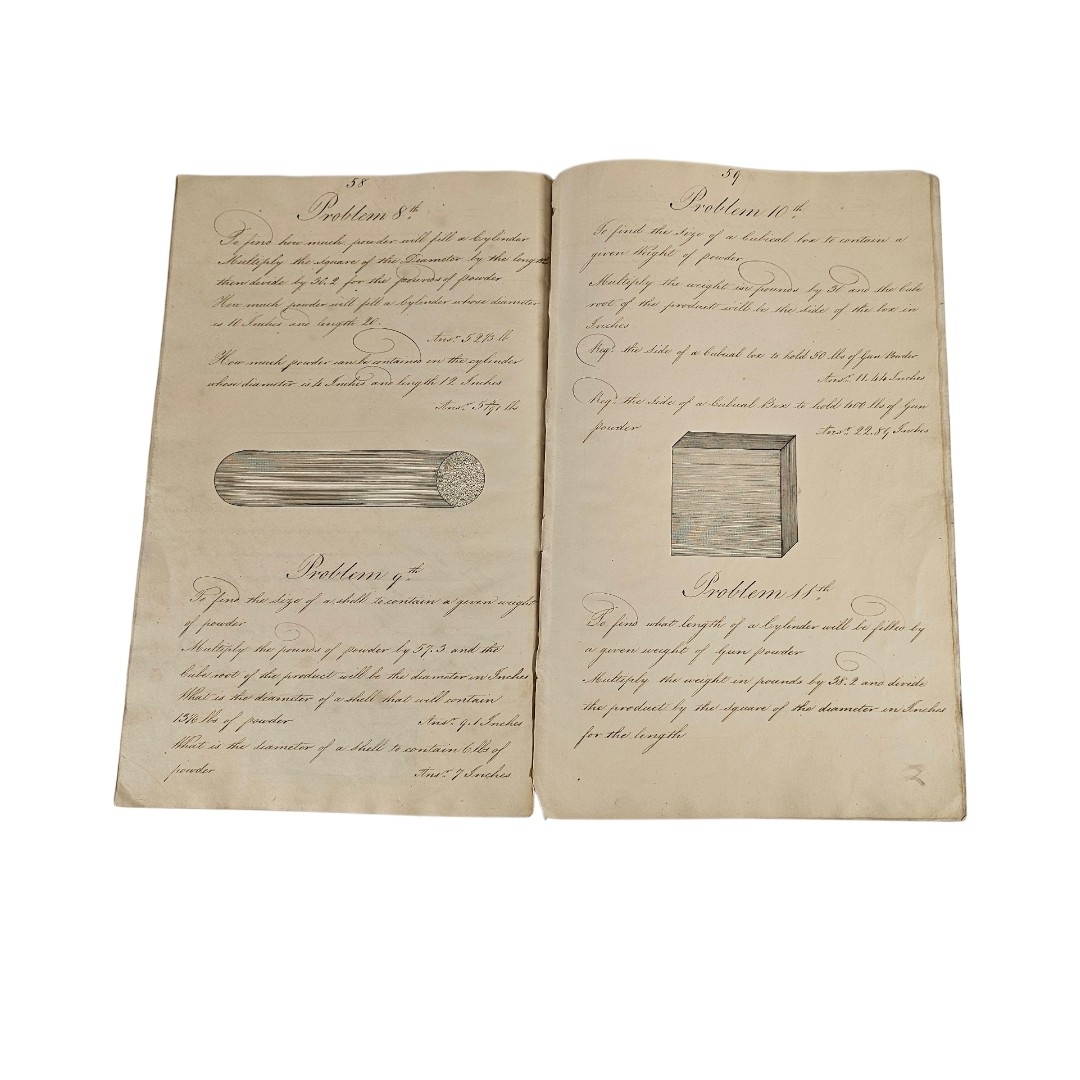 58
Problem 8th
To find how much powder will fill a Cylinder
Multiply the square of the Diameter by the length
then divide by 38.2 for the pounds of powder
How much powder will fill a Cylinder whose diameter
is 10 Inches and length 20.
Ansr. 52⅓ lb
How much powder can be contained in the cylinder
whose diameter is 4 Inches and length 12 Inches
Ansr. 5 5/191 lbs
Problem 9th
To find the size of a shell to contain a given weight
of powder
Multiply the pounds of powder by 57.3 and the
Cube root of the product will be the diameter in Inches
What is the diameter of a shell that will contain
13⅙ lbs of powder Ansr. 9.1 Inches
What is the diameter of a shell to contain 6 lbs of
powder Ansr. 7 Inches
59
Problem 10th
To find the size of a Cubical box to contain a
given Weight of powder
Multiply the weight in pounds by 30 and the Cube
root of the product will be the side of the box in
Inches
Reqd. the side of a Cubical box to hold 50 lbs of Gun Powder
Ansr. 11.44 Inches
Reqd. the side of a Cubical Box to hold 400 lbs of Gun
powder Ansr. 22.89 Inches
Problem 11th
To find what length of a Cylinder will be filled by
a given weight of Gun powder
Multiply the weight in pounds by 38.2 and divide
the product by the square of the diameter in Inches
for the length